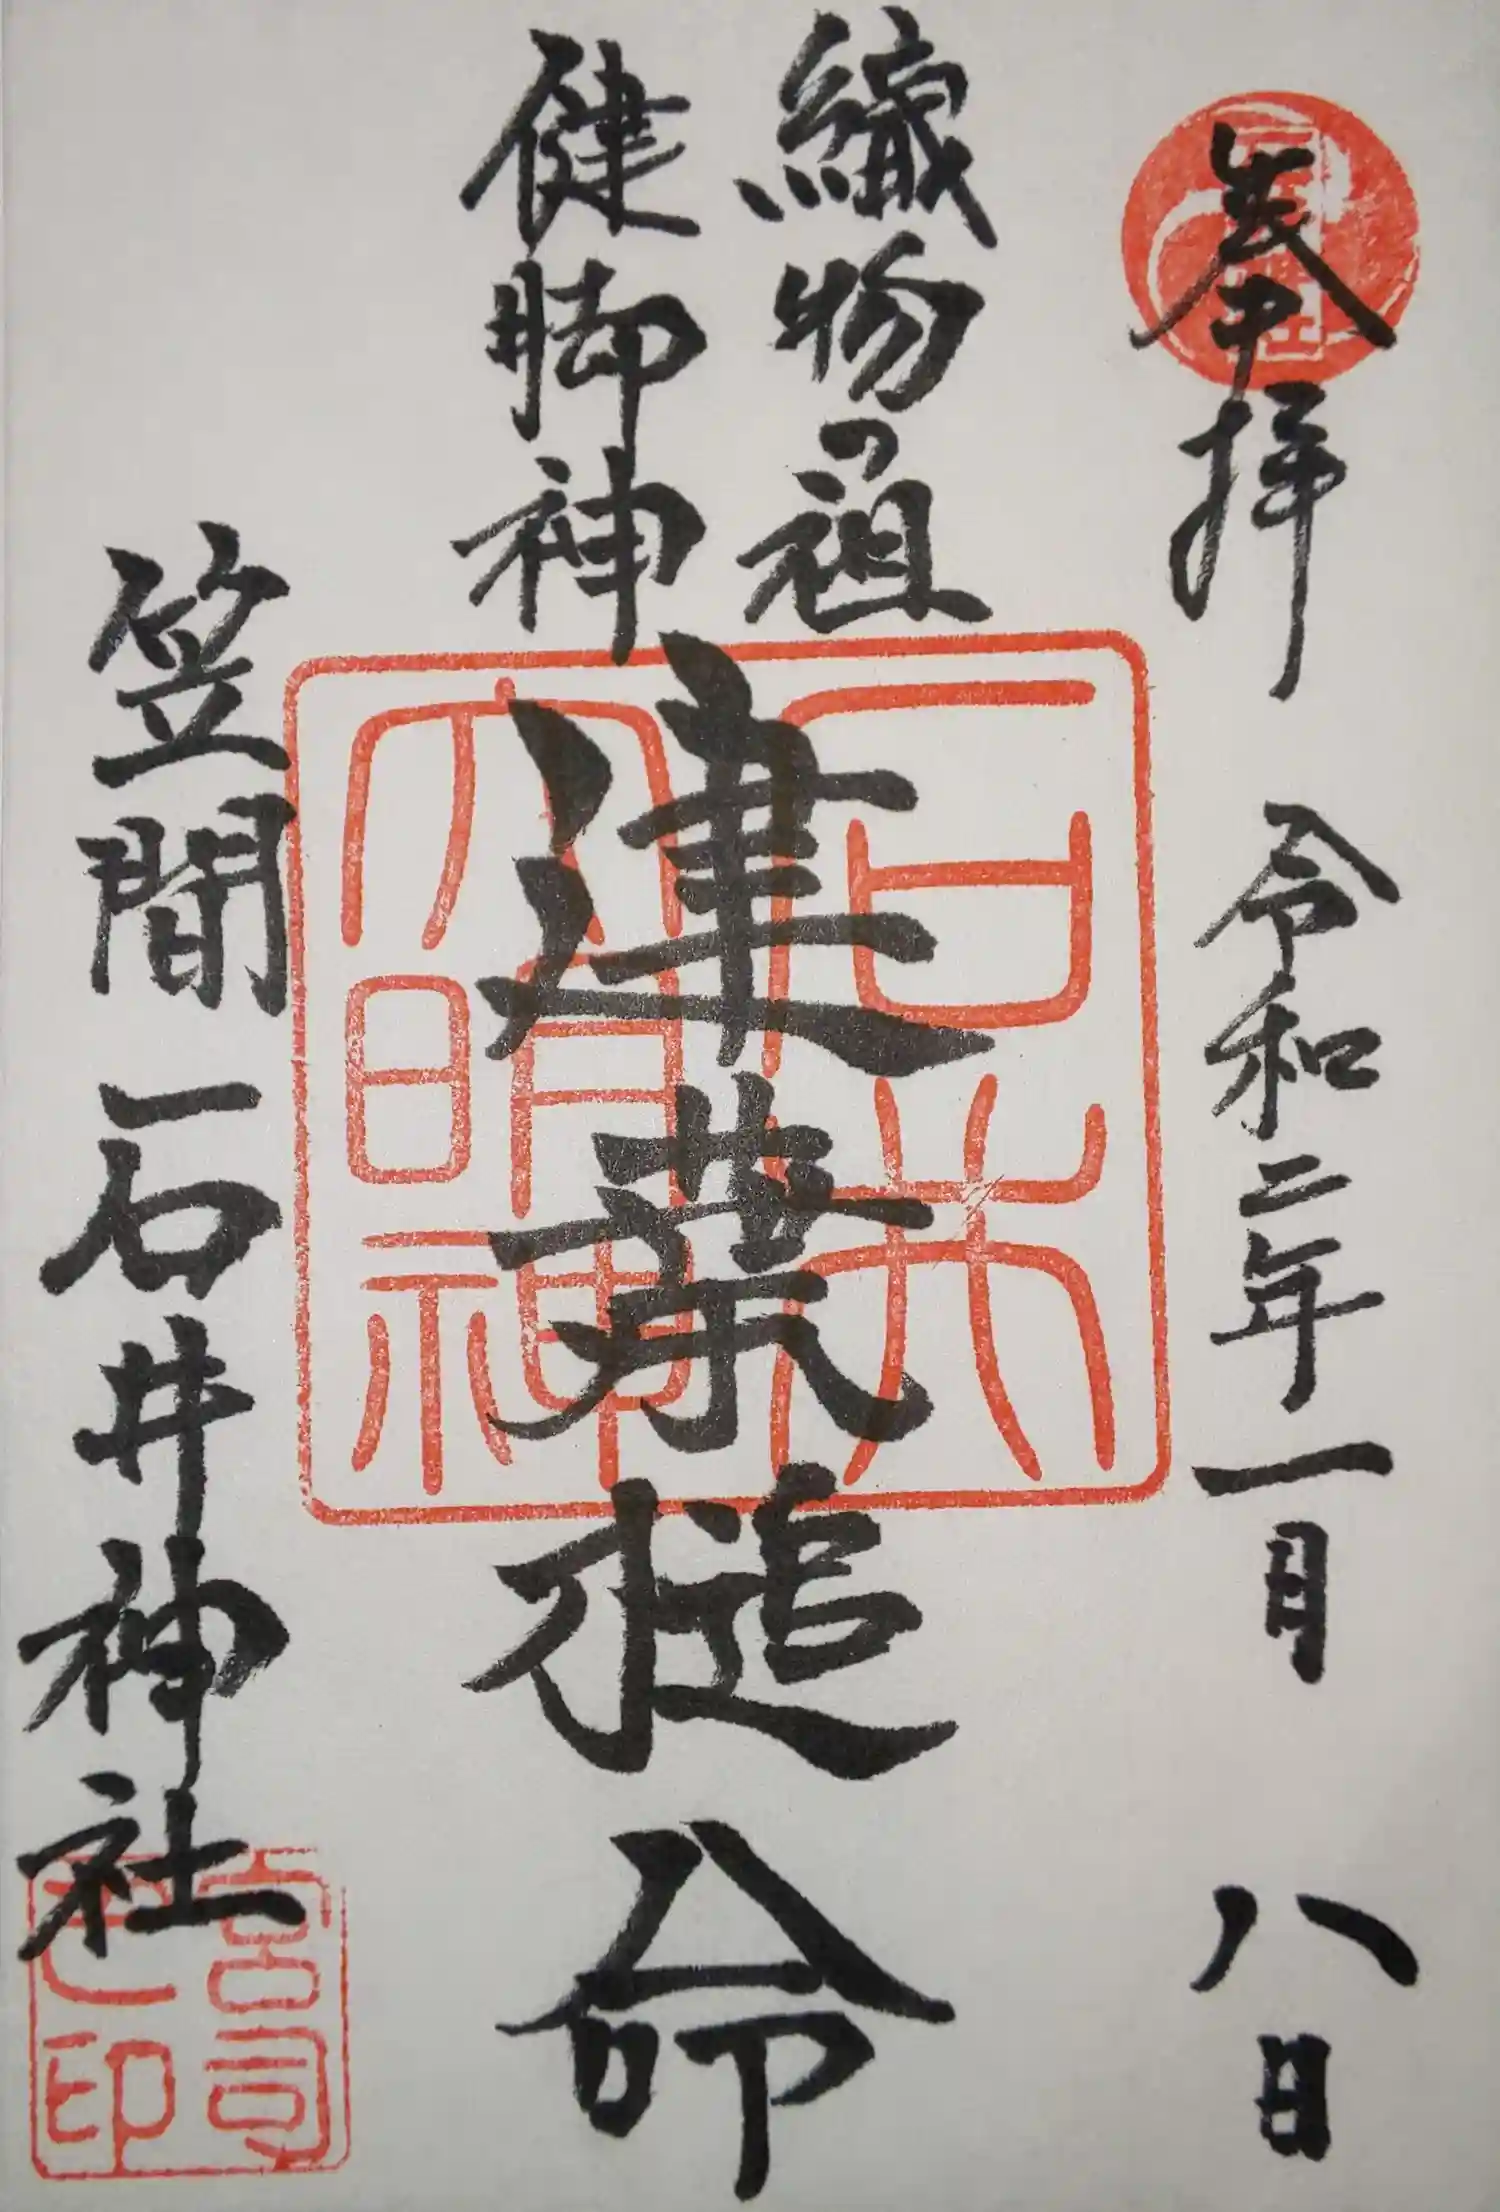 奉拝
令和二年一月八日
織物の祖
健脚神
建葉槌命
笠間 石井神社
石井
大明神
宮司
之印